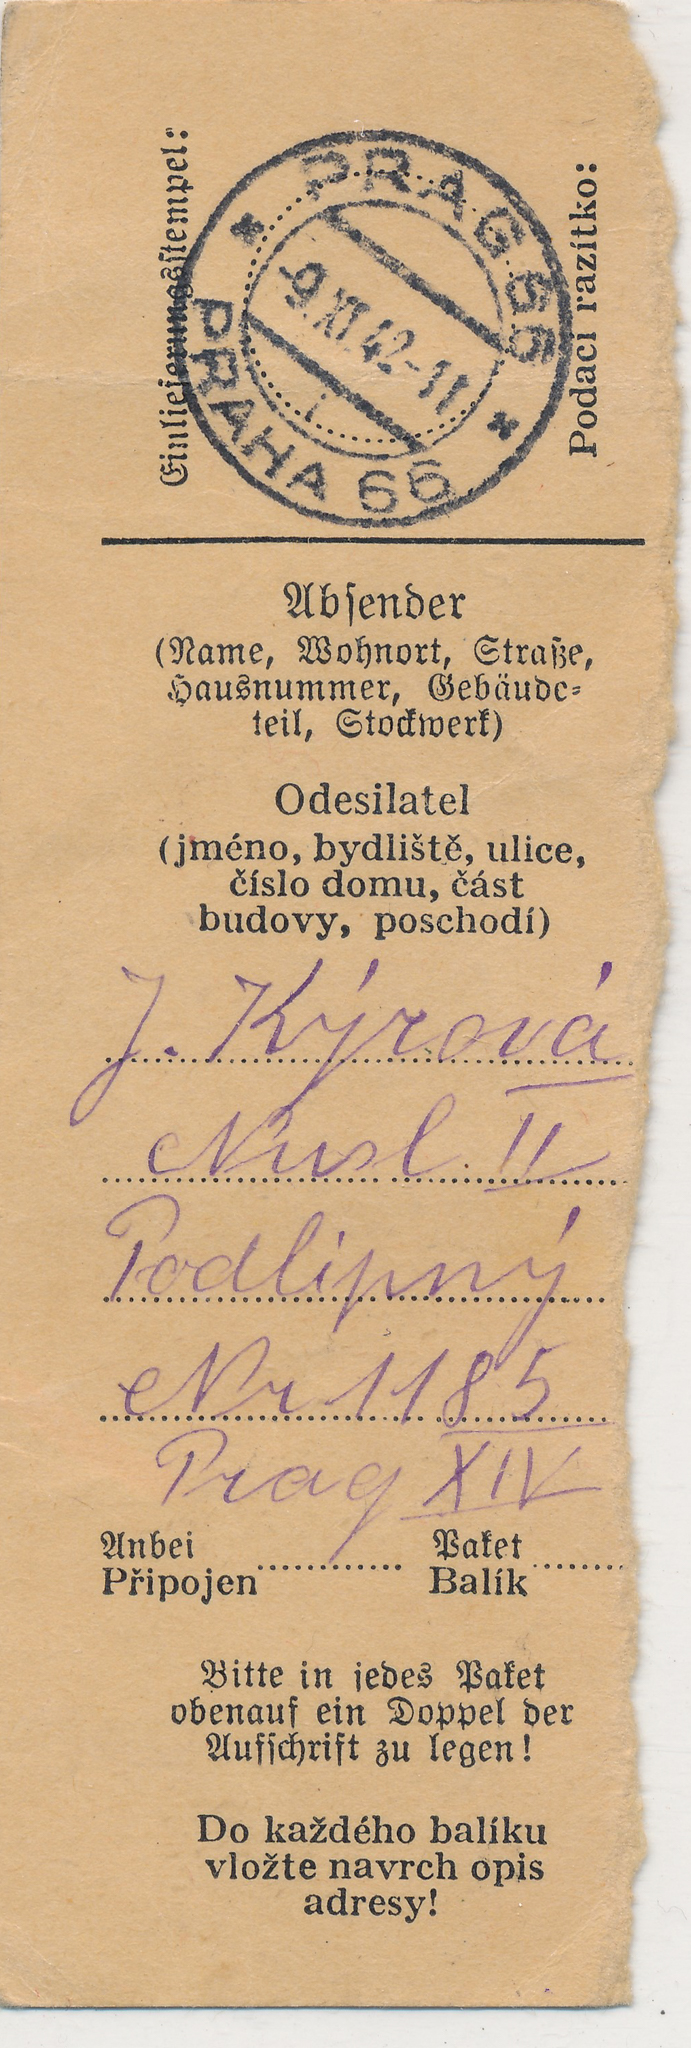 Einlieferungsstempel:
Podací razítko:
PRAG 66
-9.XI.42-11
PRAHA 66
Absender
(Name, Wohnort, Straße,
Hausnummer, Gebäude-
teil, Stockwerk)
Odesilatel
(jméno, bydliště, ulice,
číslo domu, část
budovy, poschodí)
J. Kýrová
Nusl. II
Podlipný
Nr 1185
Prag XIV
Anbei Paket
Připojen Balík
Bitte in jedes Paket
obenauf ein Doppel der
Aufschrift zu legen!
Do každého balíku
vložte navrch opis
adresy!